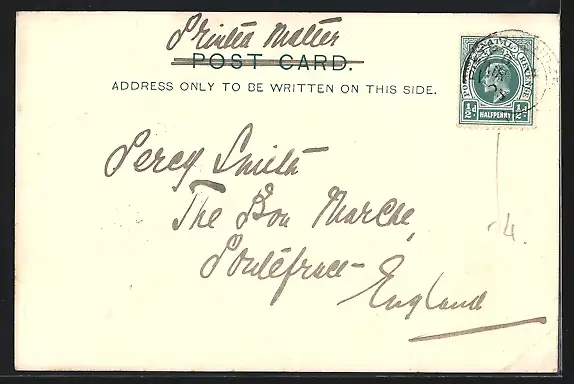 Printed Matter
POST CARD.
ADDRESS ONLY TO BE WRITTEN ON THIS SIDE.
POSTAGE REVENUE
½d HALFPENNY ½d
Percy Smith
The Bon Marche,
Pontefract
England
4.